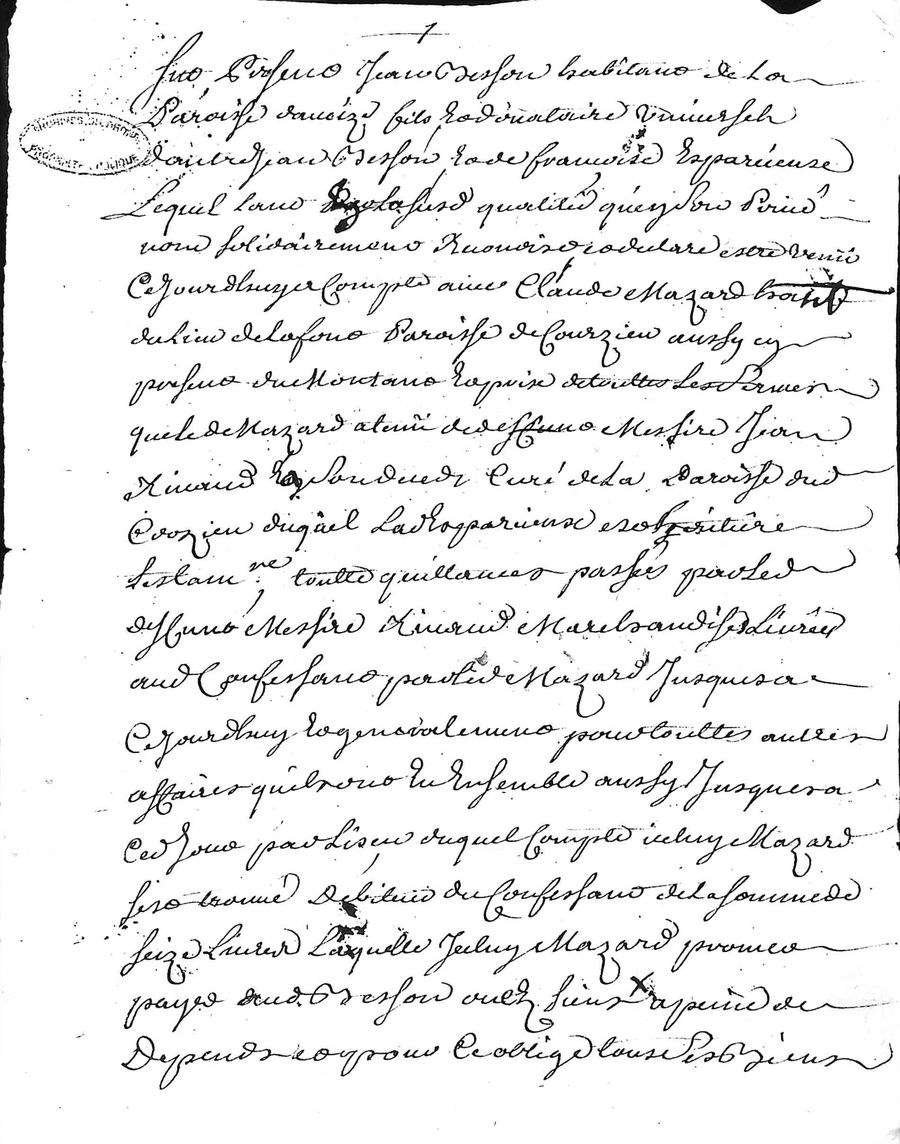 1
fut Présent Jean Besson habitant de la
Paroisse daveize fils et donataire universel
dautre Jean Besson et de francoise Esparieuse
Lequel tant en la susd qualitté quen son Privé
nom solidairement et declare estre venu
Cejourdhuy a Compte avec Claude Mazard habt
du Lieu de Lafont Paroisse de Courzieu aussy cy
present du Montant de touttes Les
que led Mazard a tenu de deffunt Messire Jean
Rinaud Curé de la Paroisse dud
Corzieu duquel Lad Esparieuse est héritière
testam.re touttes quittances passés par led
deffunt Messire Rinaud Marchandises Livrées
aud Confessant par led Mazard Jusques a
Cejourdhuy et generalement pour touttes autres
affaires quils ont Eu Ensemble aussy Jusques a
Ced Jour par Lissue duquel Compte iceluy Mazard
sest trouvé Debiteur du Confessant de la somme de
seize Livres Laquelle Iceluy Mazard promet
payer aud. Besson ou ez siens x a peine de
Depends et pour Ce oblige touts ses Biens
ARCHIVES DU RHONE
PROPRIÉTÉ PUBLIQUE